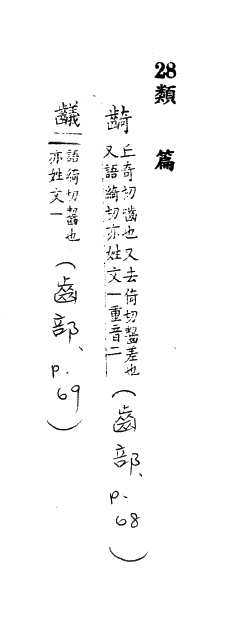 28類篇
齮丘奇切齒也又去倚切齧差也
又語綺切亦姓文一重音二(齒部、p.68)
齸語綺切齧也
亦姓文一(齒部、p.69)